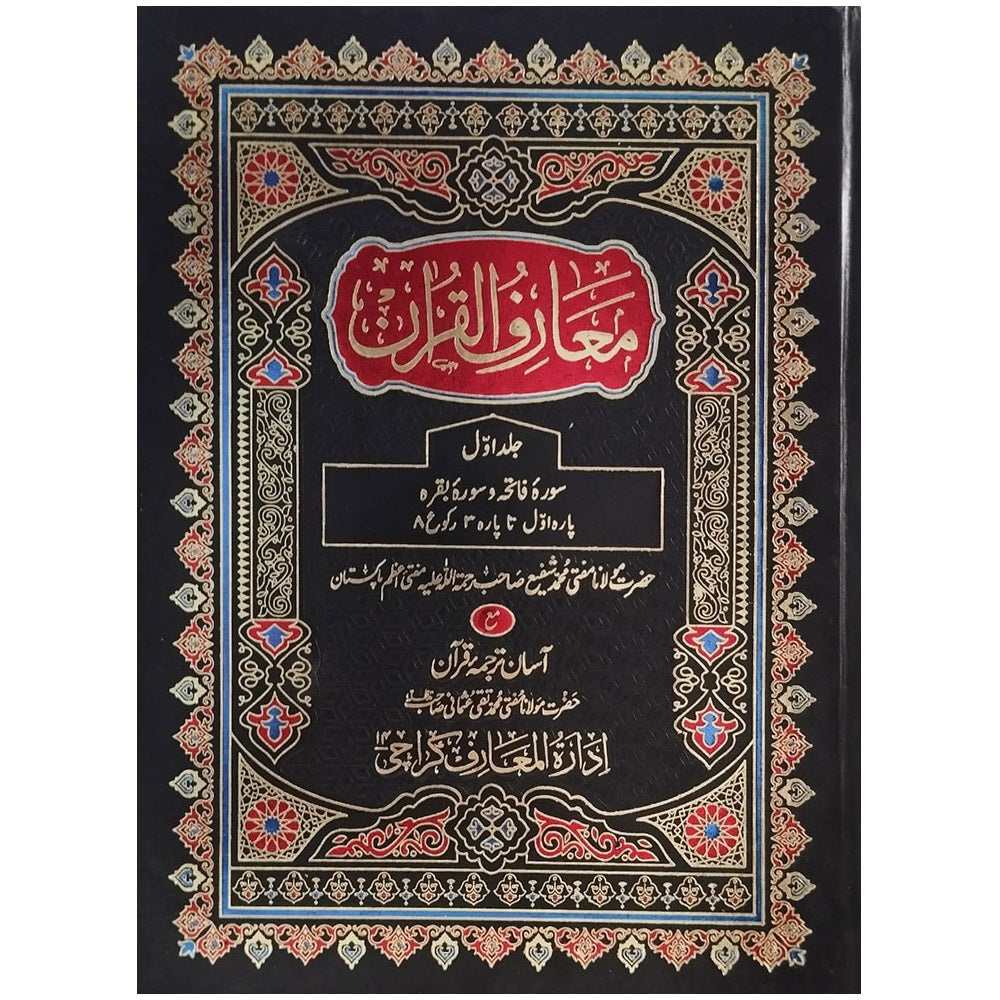 معارف القرآن
جلد اوّل
سورۂ فاتحہ و سورۂ بقرہ
پارہ اوّل تا پارہ ۳ رکوع ۸
حضرت مولانا مفتی محمد شفیع صاحب رحمۃ اللہ علیہ مفتی اعظم پاکستان
مع
آسان ترجمۂ قرآن
حضرت مولانا مفتی محمد تقی عثمانی صاحب
ادارۃ المعارف کراچی ۱۴